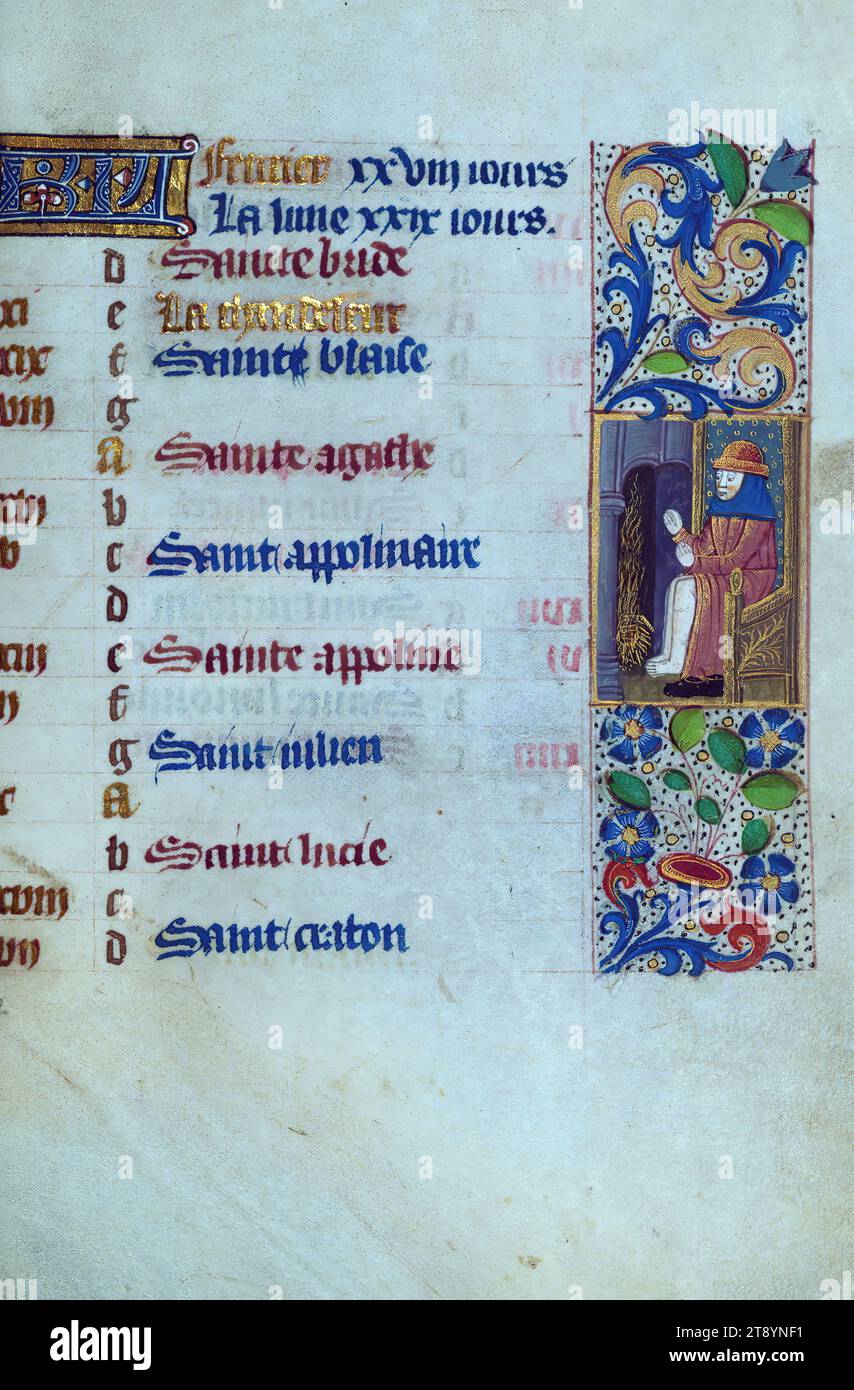 KL Feurier xxviii iours
La lune xxix iours.
d Saincte bride
xi e La chandeleur
xix f Saint blaise
viii g
A Sainte agathe
xvi b
v c Saint appolinaire
d
xiii e Sainte appoline
ii f
g Saint iulien
x A
b Saint lucie
xviii c
vii d Saint craton
alamy
Image ID: 2T8YNF1
www.alamy.com